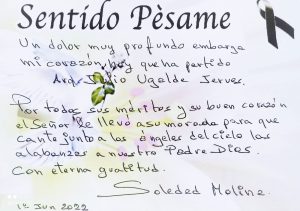 Sentido Pèsame
Un dolor muy profundo embarga
mi corazón, hoy que ha partido
Arq. Julio Ugalde Jerves.
Por todos sus méritos y su buen corazón
el Señor le llevó a su morada para que
cante junto a los ángeles del cielo las
alabanzas a nuestro Padre Dios.
Con eterna gratitud.
Soledad Molina.
Jun 2022